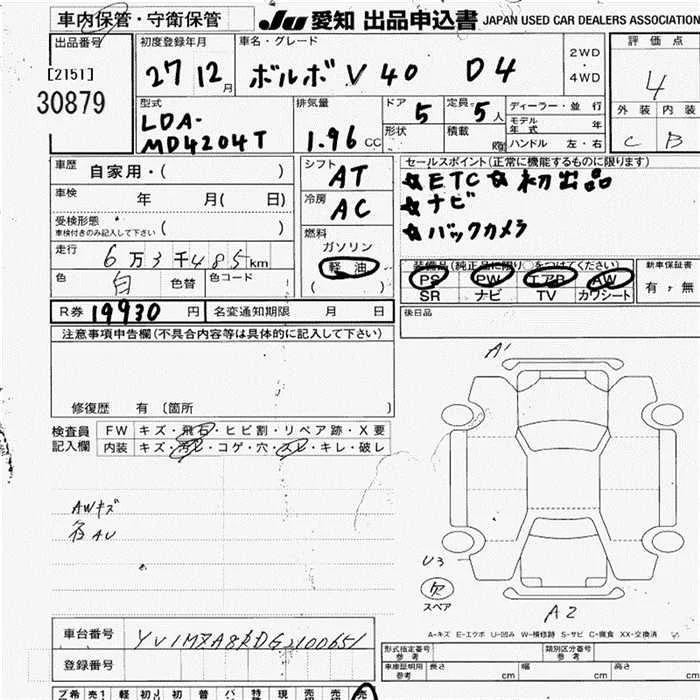 車内保管・守衛保管
Ju 愛知 出品申込書 JAPAN USED CAR DEALERS ASSOCIATION
出品番号
[2151]
30879
初度登録年月
27 12月
車名・グレード
ボルボ V40 D4
2WD
・
4WD
評価点
4
外装 内装
C B
型式
LDA-
MD4204T
排気量
1.96 CC
ドア 5
形状
定員 5人
積載 kg
ディーラー・並行
モデル年式 年
ハンドル 左・右
車歴 自家用・( )
車検 年 月( 日)
受検形態
車検付きのみ記入して下さい ( )
走行 6万3千485km
色 白 色替 色コード
シフト AT
冷房 AC
燃料
ガソリン
軽油
( )
セールスポイント(正常に機能するものに限ります)
☆ETC ☆初出品
☆ナビ
☆バックカメラ
装備品(純正品に限り○をつけてください)
PS PW エアB AW
SR ナビ TV カワシート
新車保証書
有・無
後日品
R券 19930 円 名変通知期限 月 日
注意事項申告欄(不具合内容等は具体的に記入して下さい)
修復歴 有 〔箇所 〕
検査員記入欄
FW キズ・飛石・ヒビ割・リペア跡・X要
内装 キズ・汚レ・コゲ・穴・スレ・キレ・破レ
AWキズ
各AU
A1
U3
欠
スペア
A2
A-キズ E-エクボ U-凹み W-補修跡 S-サビ C-腐食 XX-交換済
車台番号 YV1MZA8RDG2100651
登録番号
形式指定番号 参考
類別区分番号 参考
車庫証明用 参考 長さ cm 幅 cm 高さ cm